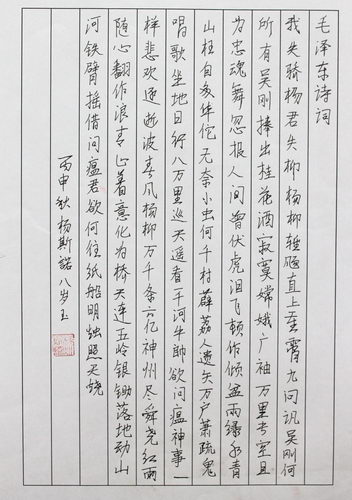 毛泽东诗词
我失骄杨君失柳杨柳轻飏直上重霄九问讯吴刚何
所有吴刚捧出桂花酒寂寞嫦娥广袖万里长空且
为忠魂舞忽报人间曾伏虎泪飞顿作倾盆雨绿水青
山枉自多华佗无奈小虫何千村薜荔人遗矢万户萧疏鬼
唱歌坐地日行八万里巡天遥看一千河牛郎欲问瘟神事一
样悲欢逐逝波春风杨柳万千条六亿神州尽舜尧红雨
随心翻作浪青山着意化为桥天连五岭银锄落地动山
河铁臂摇借问瘟君欲何往纸船明烛照天烧
丙申秋杨斯諾八岁